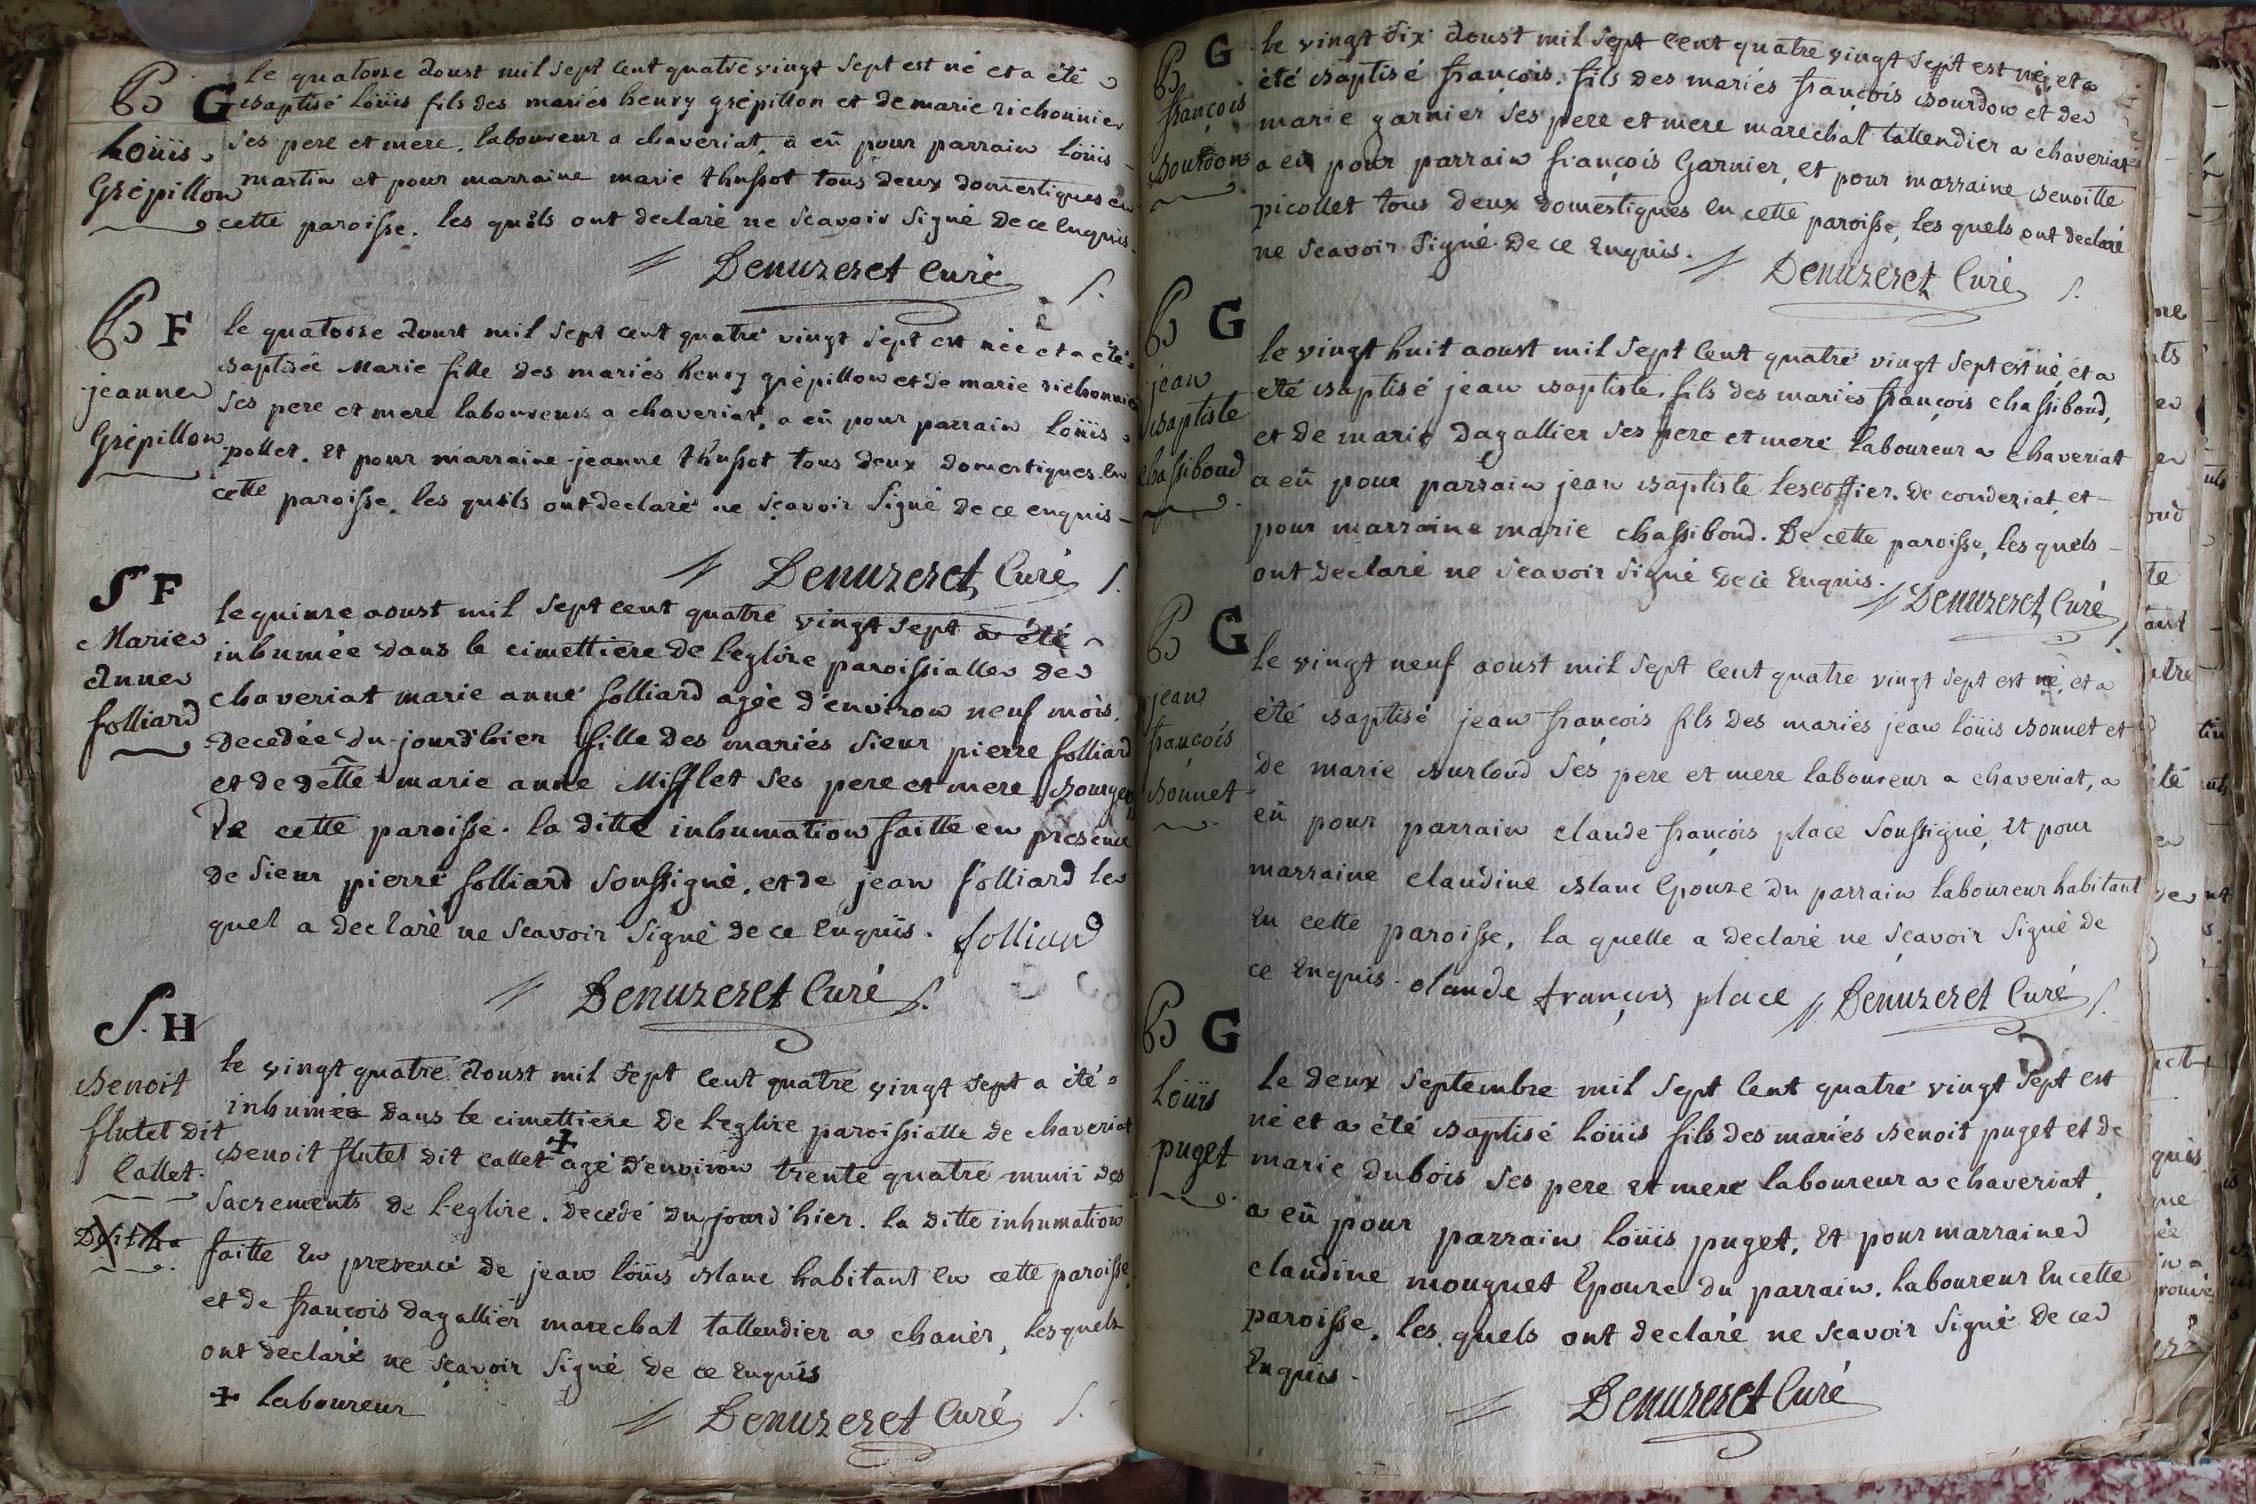 B G
Loüis
Grépillon
le quatorze doust mil sept cent quatre vingt sept est né et a été
baptisé Loüis fils des mariés henry grépillon et de marie richonnier
ses pere et mere, laboureur a chaveriat, a eü pour parrain loüis
martin et pour marraine marie thussot tous deux domestiques en
cette paroisse. les quels ont declaré ne scavoir signé de ce enquis
Denuzeret Curé
B F
jeanne
Grépillon
le quatorze doust mil sept cent quatre vingt sept est née et a été
baptisée Marie fille des mariés henry grépillon et de marie richonnier
ses pere et mere laboureurs a chaveriat, a eü pour parrain loüis
pollet. Et pour marraine jeanne thussot tous deux domestiques en
cette paroisse, les quels ont declaré ne sçavoir signé de ce enquis
Denuzeret Curé
S F
Marie
Anne
folliard
le quinze aoust mil sept cent quatre vingt sept a été
inhumée dans le cimettiere de l'eglise paroissialle de
chaveriat marie anne folliard agée d'environ neuf mois,
decedée du jourd'hier fille des mariés sieur pierre folliard
et de dette marie anne Mifflet ses pere et mere Bourgeois
de cette paroisse. la ditte inhumation faitte en presence
de sieur pierre folliard soussigné, et de jean folliard le
quel a declaré ne scavoir signé de ce enquis. folliard
Denuzeret Curé
S. H
Benoit
flutet dit
Callet.
le vingt quatre doust mil sept cent quatre vingt sept a été
inhumée dans le cimettiere de l'eglise paroissialle de chaveriat
Benoit flutet dit callet + agé d'environ trente quatre muni des
sacrements de l'eglise. decedé du jourd'hier. la ditte inhumation
faitte en presence de jean loüis blanc habitant en cette paroisse
et de françois dagallier marechal tallendier a chanèr, les quels
ont declaré ne sçavoir signé de ce enquis
+ laboureur
Denuzeret Curé
B G
françois
Bourdon
le vingt six doust mil sept cent quatre vingt sept est né, et a
été baptisé françois. fils des mariés françois Bourdon et de
marie garnier ses pere et mere marechal tallendier a chaveriat
a eü pour parrain françois Garnier, et pour marraine Benoitte
picollet tous deux domestiques en cette paroisse, les quels ont declaré
ne scavoir signé de ce enquis.
Denuzeret Curé
B G
jean
Baptiste
chassiboud
le vingt huit aoust mil sept cent quatre vingt sept est né, et a
été baptisé jean baptiste. fils des mariés françois chassiboud,
et de marie dagallier ses pere et mere laboureur a chaveriat
a eü pour parrain jean baptiste lescoffier. de couderiat, et
pour marraine marie chassiboud. De cette paroisse, les quels
ont declaré ne scavoir signé de ce enquis.
Denuzeret Curé
B G
jean
françois
Bonnet
le vingt neuf aoust mil sept cent quatre vingt sept est né, et a
été baptisé jean françois fils des mariés jean loüis Bonnet et
de marie Burloud ses pere et mere laboureur a chaveriat, a
eü pour parrain claude françois place soussigné, Et pour
marraine claudine blanc Epouze du parrain laboureur habitant
en cette paroisse, la quelle a declaré ne sçavoir signé de
ce enquis. claude françois place Denuzeret Curé
B G
Loüis
puget
Le deux septembre mil sept cent quatre vingt sept est
né et a été baptisé Loüis fils des mariés Benoit puget et de
marie dubois ses pere et mere laboureur a chaveriat,
a eü pour parrain loüis puget, Et pour marraine
claudine mouguet Epouze du parrain. laboureur En cette
paroisse, les quels ont declaré ne scavoir signé de ce
Enquis.
Denuzeret Curé